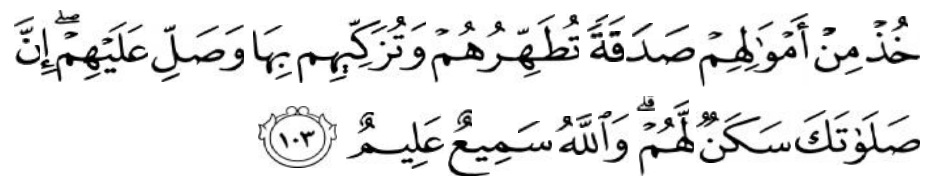 خُذۡ مِنۡ أَمۡوَٰلِهِمۡ صَدَقَةٗ تُطَهِّرُهُمۡ وَتُزَكِّيهِم بِهَا وَصَلِّ عَلَيۡهِمۡۖ إِنَّ
صَلَوَٰتَكَ سَكَنٞ لَّهُمۡۗ وَٱللَّهُ سَمِيعٌ عَلِيمٌ ١٠٣